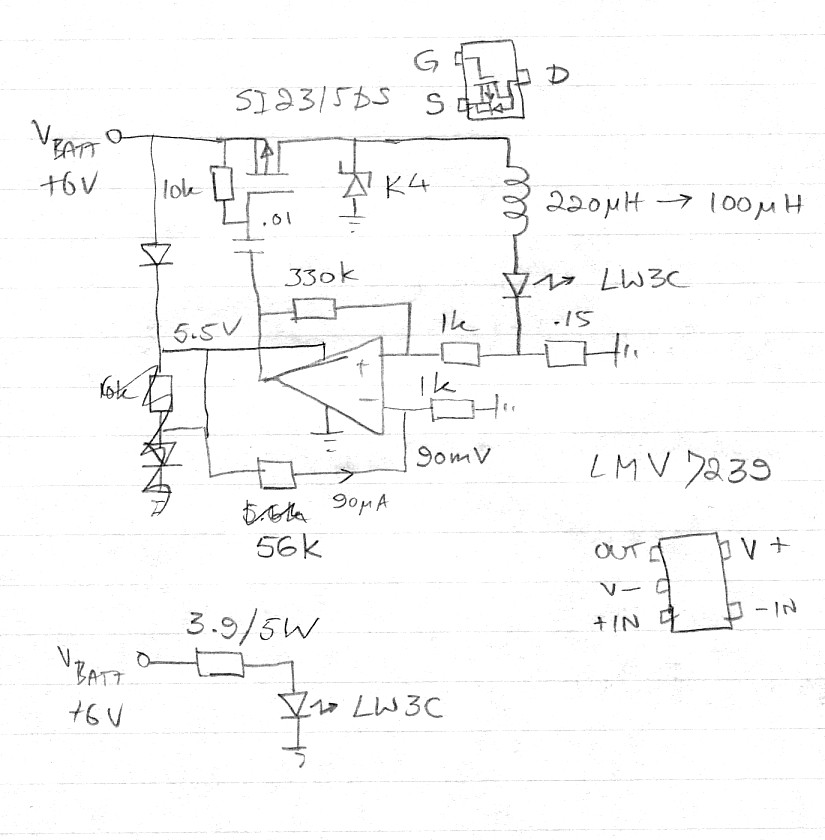 G
D
S
SI2315DS
VBATT
+6V
10k
.01
K4
220µH → 100µH
330k
LW3C
5.5V
1k
.15
10k
+
1k
−
90mV
LMV 7239
90µA
5.6k
56k
OUT
V+
V−
+IN
-IN
3.9/5W
VBATT
+6V
LW3C